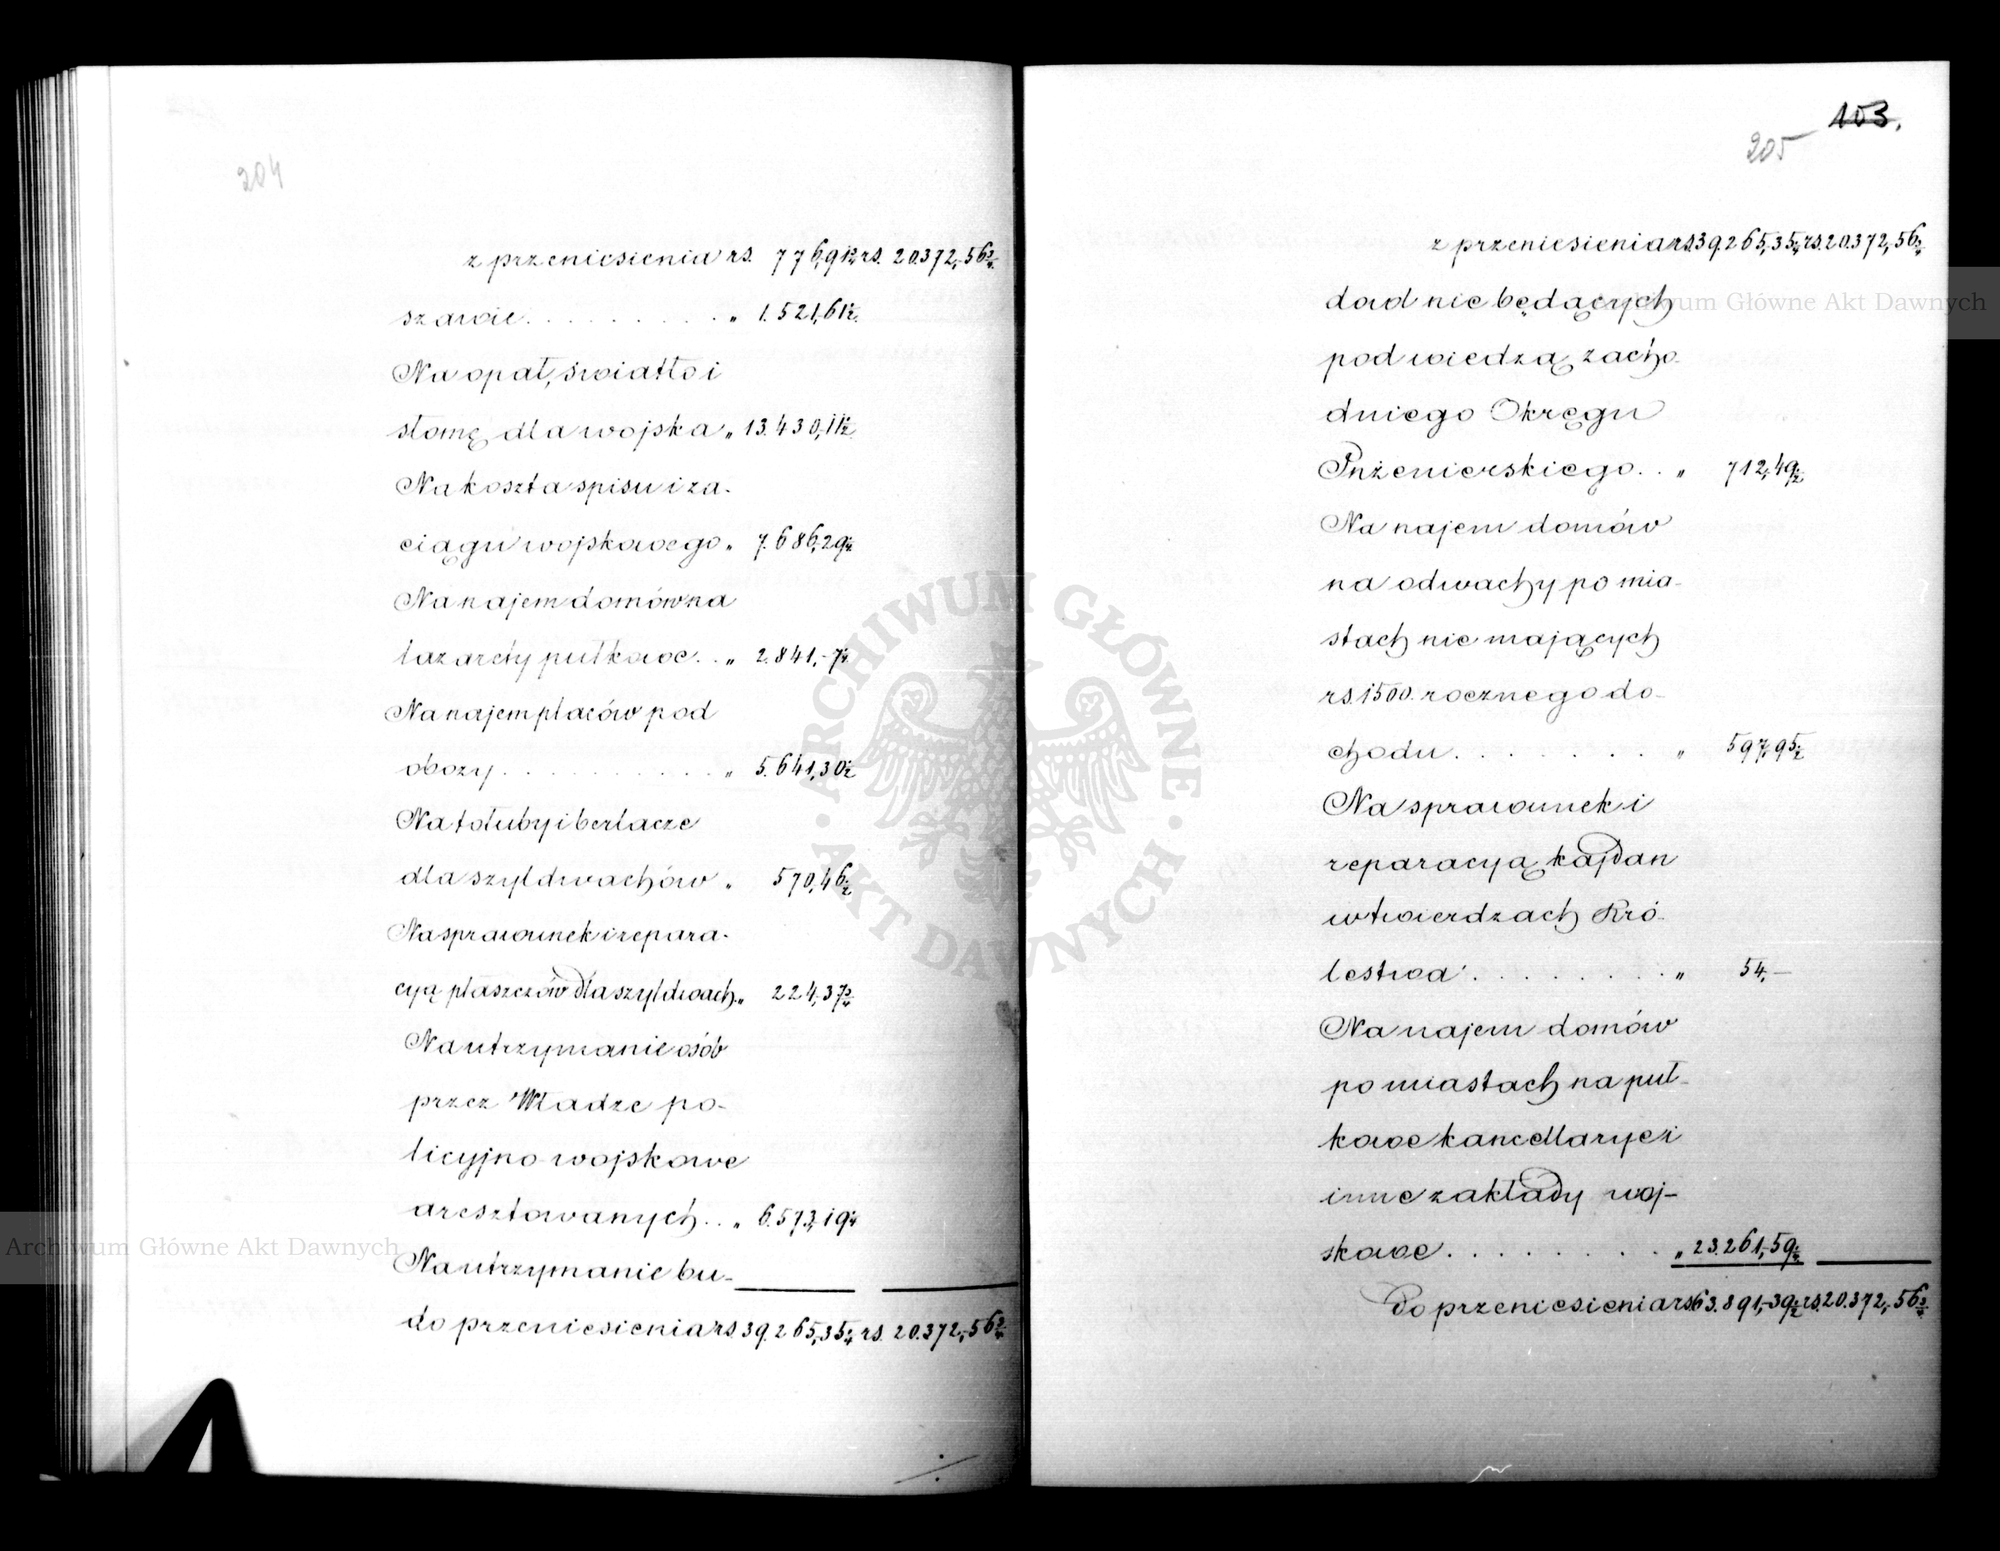 204
z przeniesienia rs. 776,91½ rs. 20.372,56¾
szawie . . . . . . . . . . „ 1.521,61½
Na opał, światło i
słomę dla wojska „ 13.430,11½
Na koszta spisu i za-
ciągu wojskowego „ 7.686,29¼
Na najem domów na
lazarety pułkowe . . „ 2.841,-7¼
Na najem placów pod
obozy . . . . . . . . . . „ 5.641,30½
Na tołuby i berlacze
dla szyldwachów „ 570,46½
Na sprawunek i repara-
cyą płaszczów dla szyldwach. „ 224,37¾
Na utrzymanie osób
przez Władze po-
licyjno-wojskowe
aresztowanych . . „ 6.573,19¼
Na utrzymanie bu-
do przeniesienia rs. 39.265,35¼ rs. 20.372,56¾
103.
205
z przeniesienia rs. 39.265,35¼ rs. 20.372,56¾
dowl nie będących
pod wiedzą zacho-
dniego Okręgu
Inżenierskiego . . „ 712,49½
Na najem domów
na odwachy po mia-
stach nie mających
rs. 1500. rocznego do-
chodu . . . . . . . „ 597,95½
Na sprawunek i
reparacyą kajdan
w twierdzach Kró-
lestwa . . . . . . . . „ 54,—
Na najem domów
po miastach na puł-
kowe kancellarye i
inne zakłady woj-
skowe . . . . . . . . . „ 23.261,59¼
Do przeniesienia rs. 63.891,39½ rs. 20.372,56¾
ARCHIWUM GŁÓWNE
AKT DAWNYCH
Archiwum Główne Akt Dawnych
Archiwum Główne Akt Dawnych